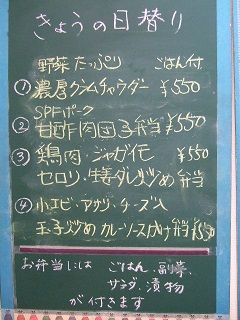 きょうの日替り
野菜たっぷり ごはん付
① 濃厚クラムチャウダー ¥550
SPFポーク
② 甘酢肉団子弁当 ¥550
③ 鶏肉・ジャガイモ ¥550
セロリ・生姜ダレ炒め弁当
④ 小エビ・アサリ・チーズ入
玉子炒めカレーソースかけ弁当 ¥550
お弁当には ごはん、副菜、
サラダ、漬物
が付きます